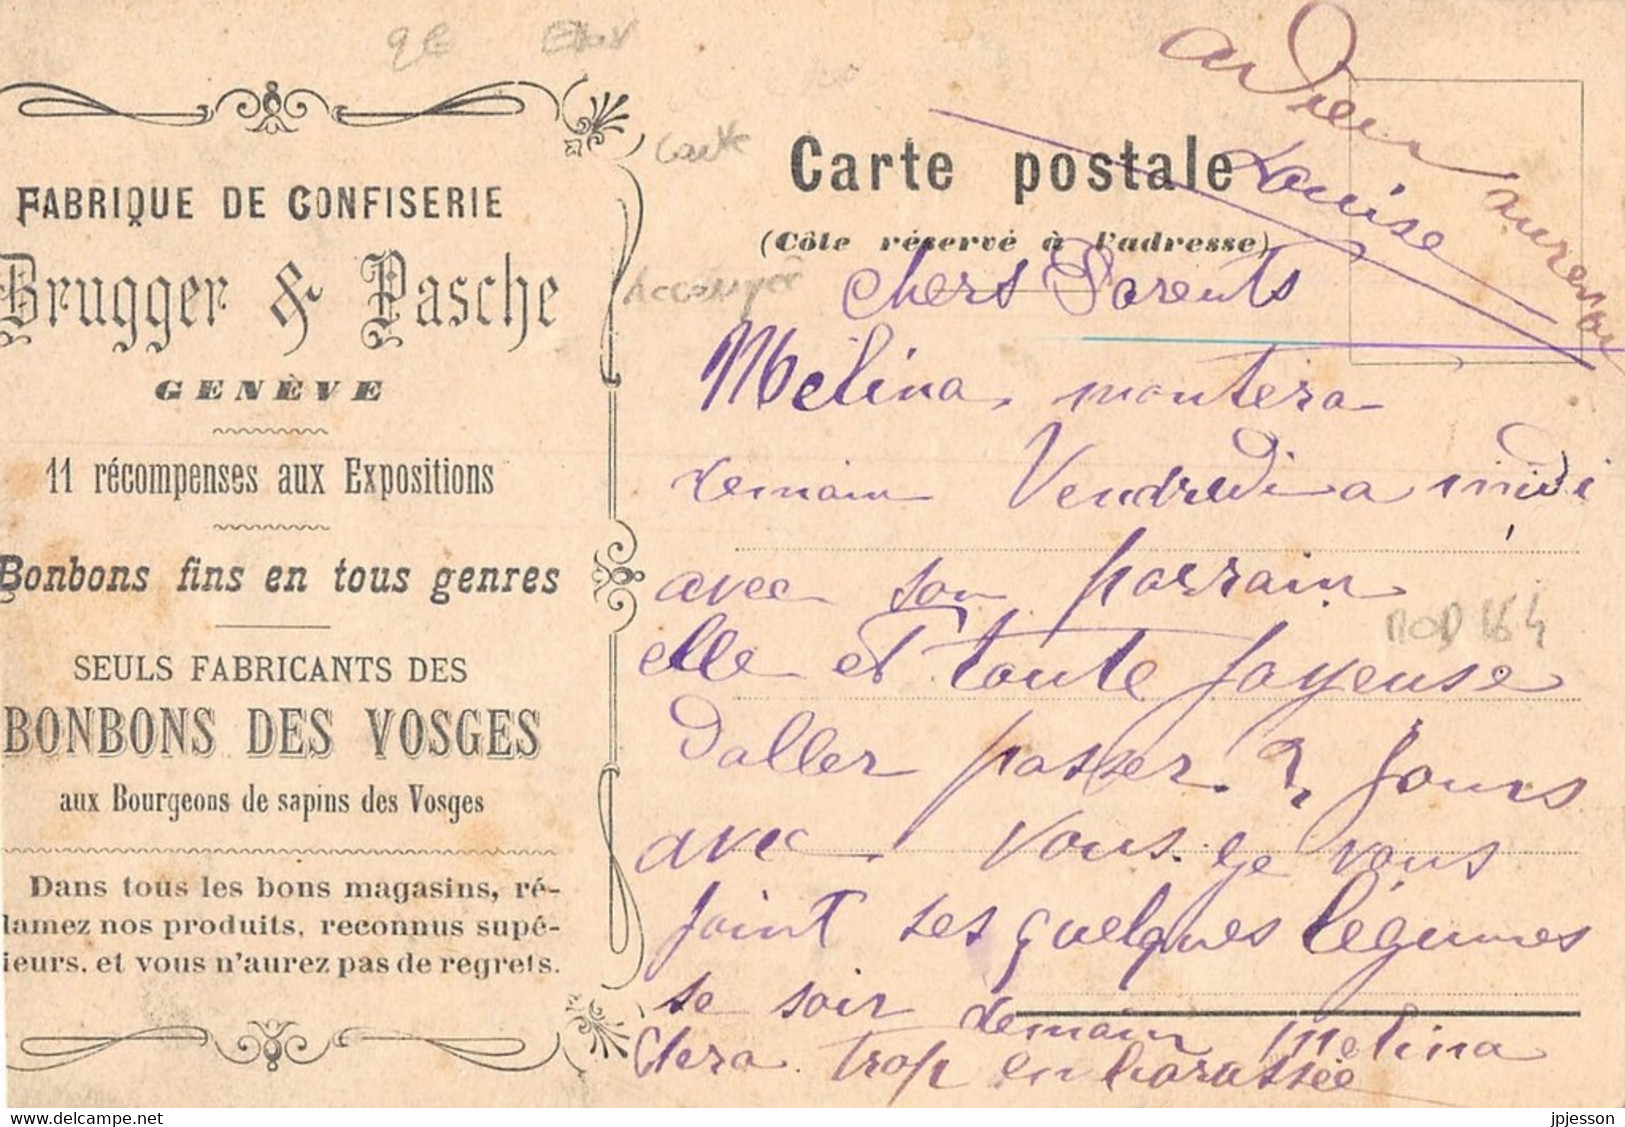 FABRIQUE DE CONFISERIE
Brugger & Pasche
GENÈVE
11 récompenses aux Expositions
Bonbons fins en tous genres
SEULS FABRICANTS DES
BONBONS DES VOSGES
aux Bourgeons de sapins des Vosges
Dans tous les bons magasins, ré-
lamez nos produits, reconnus supé-
ieurs, et vous n'aurez pas de regrets.
9€
Carte
Carte postale
(Côte réservé à l'adresse)
chers Parents
Mélina, montera
demain Vendredi a midi
avec son parrain
elle et toute joyeuse
daller passer 2 jours
avec vous. je vous
joint ses quelques légumes
se soir demain melina
Sera trop embarassée
adieu aurevoir
Louise
MOD 164
jpjesson